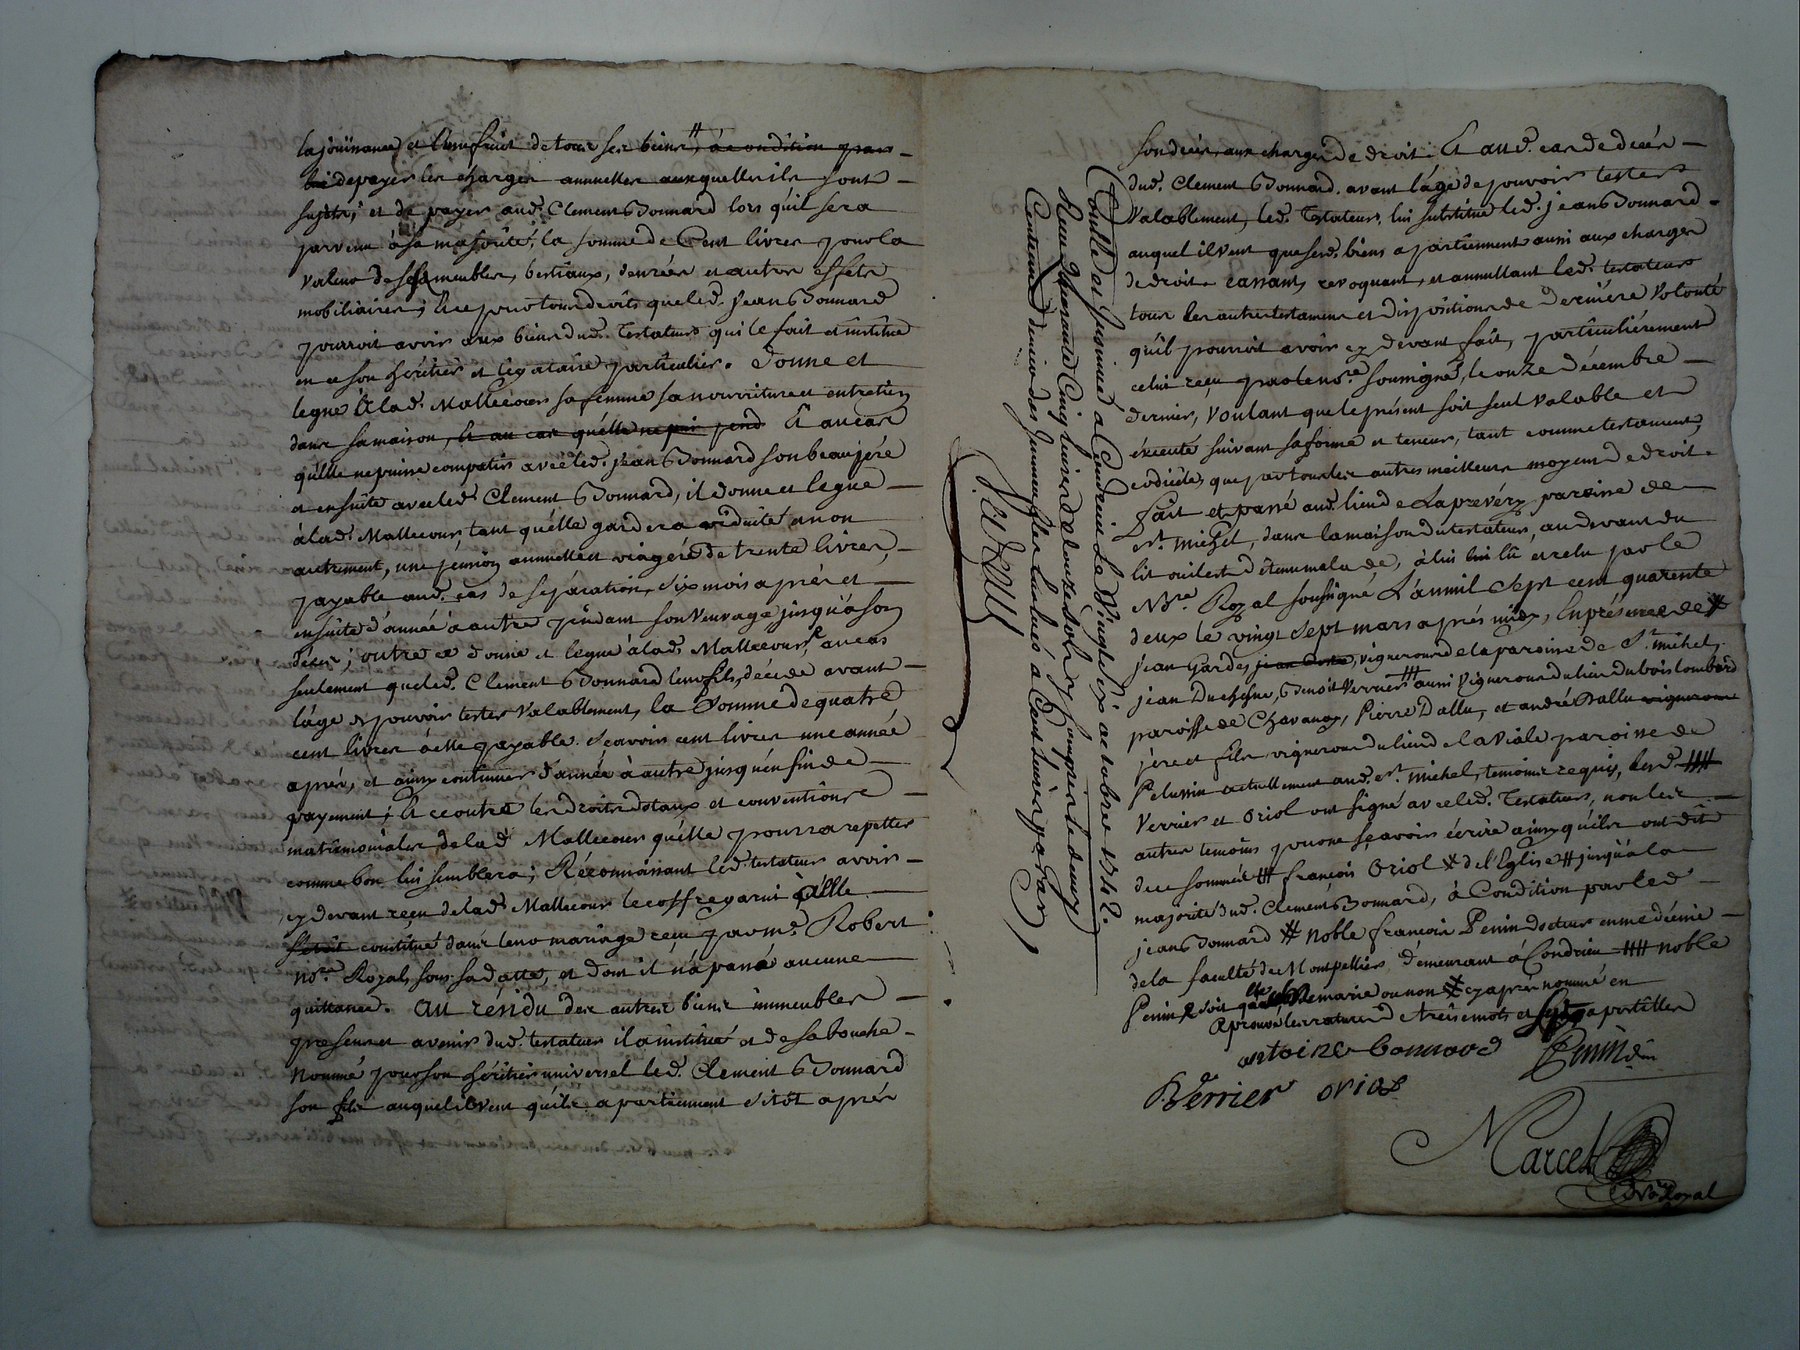 la jouissance et l'usufruit de tous ses biens # à condition par
lui de payer les charges annuelles auxquelles ils sont
sujets, et de payer aud. Clement Bonnard lors qu'il sera
parvenu à sa majorité, la somme de Cent livres pour la
valeur de ses meubles, bestiaux, denrées et autres effets
mobiliaires; et ce pour tous droits que led. Jean Bonnard
pourroit avoir aux biens dud. Testateur qui le fait et institue
en ce son héritier et légataire particulier. Donne et
legue à lad. Mallecour sa femme sa nourriture et entretien
dans sa maison, et au cas quélle ne puis pend Et au cas
qu'elle ne puisse compatir avec led. Jean Bonnard son beaupére
et ensuite avec led. Clement Bonnard, il donne et legue
à lad. Mallecour tant quélle gardera viduité a non
autrement, une pension annuelle et viagére de trente livres,
payable aud. cas de séparation, six mois aprés et
ensuite d'année à autre pendant son veuvage jusqu'à son
décès; outre ce donne et legue à lad. Mallecour, au cas
seulement que led. Clement Bonnard leur fils, décéde avant
l'âge de pouvoir tester valablement, la somme de quatre
cent livres à elle payable. Sçavoir cent livres une année
aprés, et ainsy continuer d'année à autre jusqu'en fin de
payement; et ce outre les droits dotaux et conventions
matrimoniales de lad. Mallecour quélle pourra repetter
comme bon lui semblera; Réconnaissant led. testateur avoir
cy devant reçu de lad. Mallecour le coffre garni qélle
s'étoit constitué dans leur mariage reçu par me. Robert
nore. Royal, sous sa datte, et dont il n'a passé aucune
quittance. au résidu des autres biens immeubles
presens et avenir dud. testateur il a institué et de sa bouche
nommé pour son héritier universel led. Clement Bonnard
son fils auquel il veut qu'ils apartiennent sitôt aprés
Controllé et Insinué à Condrieu Le Vingt six octobre 1742.
Reçu quarante Cinq livres douze sols y compris le demy
Centieme denier des Immeubles Evalués à Cent livres par an,
son décès, aux charges de droit. Et aud. cas de décès
dud. Clement Bonnard, avant l'âge de pouvoir tester
valablement, led. Testateur, lui substitue led. Jean Bonnard
auquel il veut que sesd. biens apartiennent aussi aux charges
de droit. cassant, revoquant, et annullant led. testateur
tous les autres testamens et dispositions de derniére volonté
qu'il pourroit avoir cy devant fait, particuliérement
celui reçu par le nore. soussigné, le onze décembre
dernier, voulant que le présent soit seul valable et
éxécuté suivant sa forme et teneur, tant comme testament,
codicile, que par tous les autres meilleurs moyens de droit.
Fait et passé aud. lieu de Lapreverÿ paroisse de
st. Michel, dans la maison du testateur, au devant du
lit où il est détenu malade, à lui lû et relu par le
Nore. Royal soussigné L'an mil sept cent quarente
deux le vingt sept mars aprés midy, En présence de #
jean Gardes, jean Coste, vigneron de la paroisse de St. michel,
jean Duchesne, Benoit Verrier ### aussi Vignerons du lieu du bois lombard
paroisse de Chavanay, Pierre Dallu, et andré Dallu vignerons
pére et fils vignerons du lieu de la Viale paroisse de
Pelussin actuellement aud. st. michel, temoins requis, lesd. ####
Verrier et Oriol ont signé avec led. Testateur, non les
autres temoins pour ne sçavoir écrire ainsy qu'ils ont dit
de ce sommés ### françois Oriol # de l'Eglise # jusqu'à la
majorité dud. Clement Bonnard, à Condition par led.
jean Bonnard # noble françois Penin docteur en médécine
de la faculté de Montpellier, demeurant à Condrieu #### noble
Penin # soit quelle se remarie ou non # cy aprés nommé en
Aprouvé les ratures de treise mots et sept apostilles
antoine bonnard
Penin dm
B Verrier oriol
Marcel
Nore. Royal